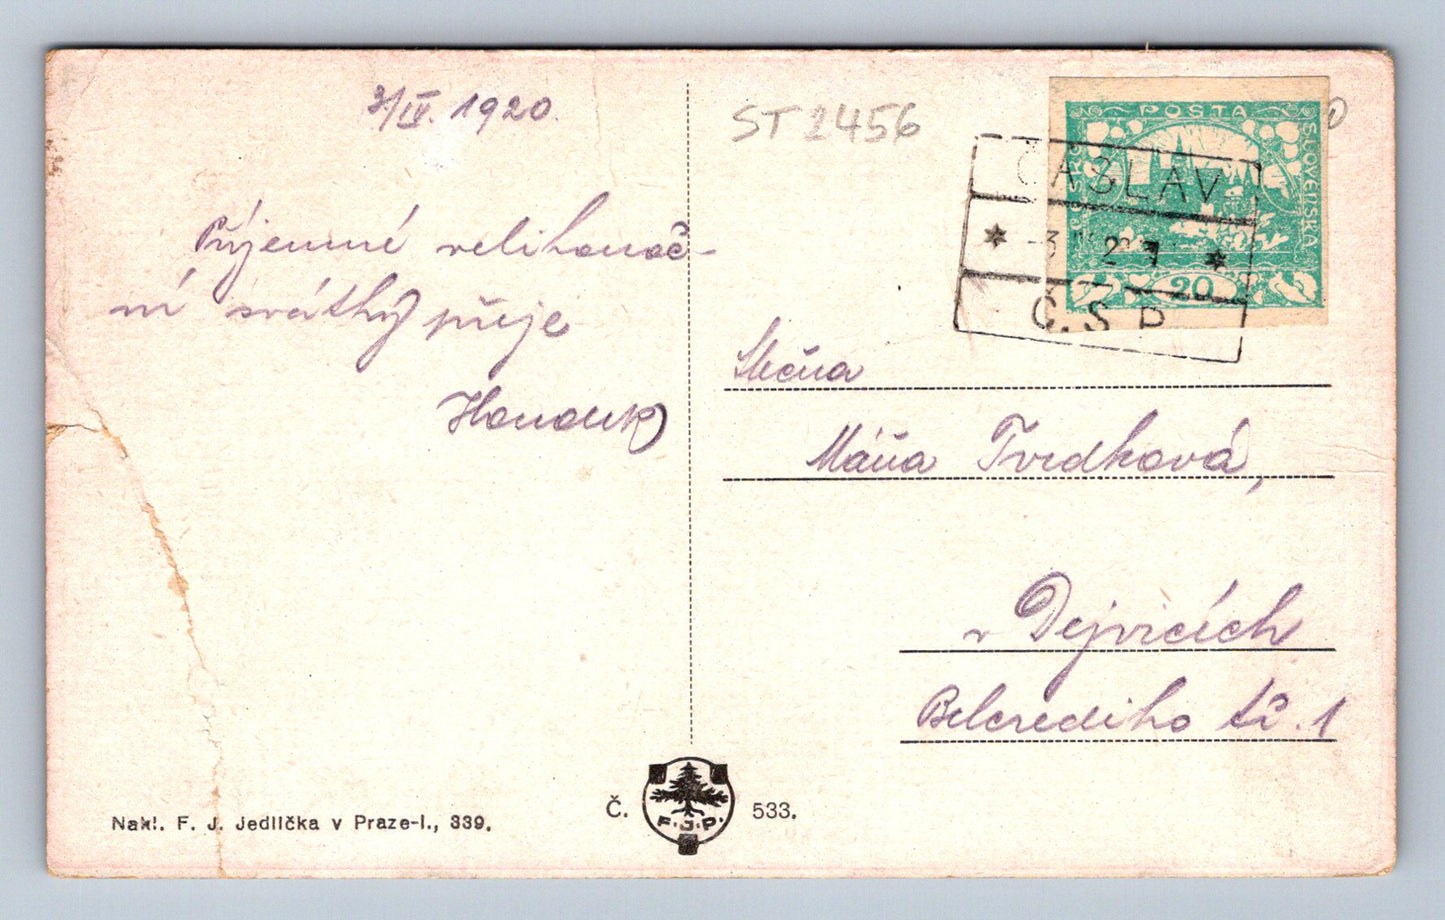 2/IV. 1920.
Příjemné velikonoč-
ní svátky přeje
ST 2456
POŠTA
ČESKO
SLOVENSKÁ
20
ČÁSLAV
-3 IV 20
Č.S.P.
Slečna
Máňa Tvrdková,
v Dejvicích
Belcrediho tř. 1
Nakl. F. J. Jedlička v Praze-I., 339.
Č. 533.
F.J.P.